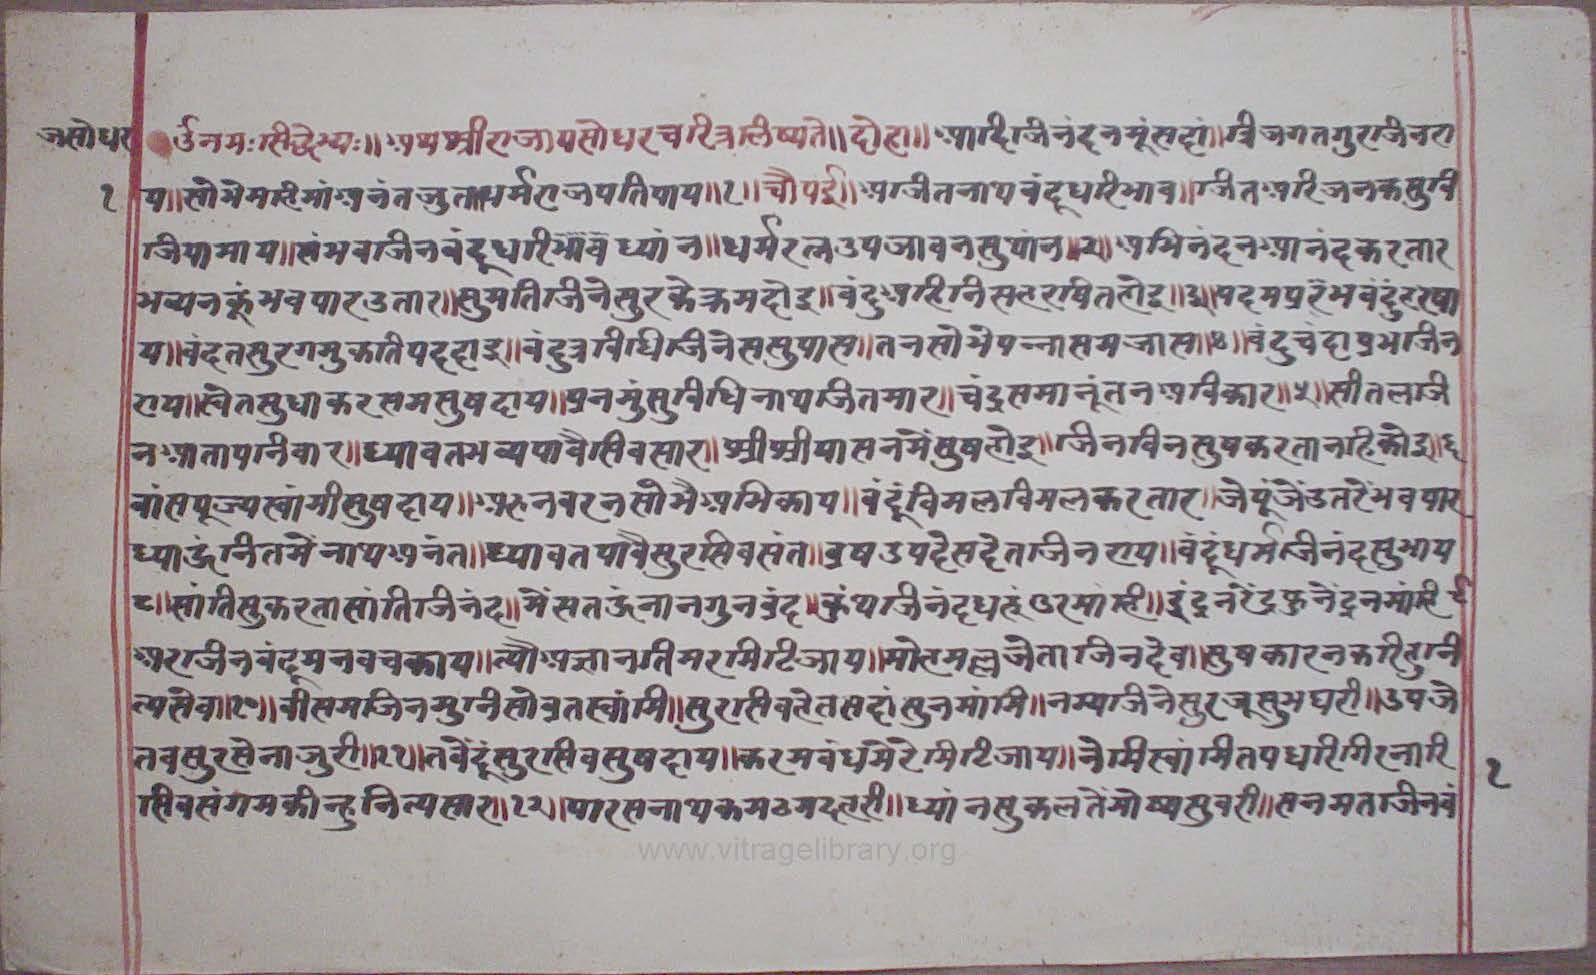 जसोधर
१
र्उनमःसिद्धेभ्यः॥अथश्रीराजायसोधरचरित्रलिष्यते॥दोहा॥आदिजिनंदनमूंसदां॥त्रिजगतगुरजिनरा
य॥सोभेमहिमांअनंतजुत॥धर्मराजपतिपाय॥१॥चौपई॥अजितनाथबंदूधरिभाव॥जितअरिजनकसुवि
जियामाय॥संभवजिनबंदूधरिभावध्यांन॥धर्मरत्नउपजावनसुथांन॥२॥अभिनंदनआनंदकरतार
भव्यनकूंभवपारउतार॥सुमतिजिनेसुरकेक्रमदोइ॥बंदुअहिनिसहरषितहोइ॥३॥पदमप्ररंभबंदुंहरषा
य॥बंदतसुरगमुकतिपदहाइ॥बंदुत्रविधिजिनेससुपास॥तनसोभेपन्नासमजास॥४॥बंदुचंदाप्रभजिन
राय॥स्वेतसुधाकरसमसुषदाय॥प्रनमुंसुविधिनाथजितमार॥चंद्रसमानूंतनअविकार॥५॥सीतलजि
नआतापनिवार॥ध्यावतभव्यपावैसिवसार॥श्रीश्रीयासनमेंसुषहोइ॥जिनविनसुषकरतानहिकोइ॥६
वांसपूज्यस्वांमीसुषदाय॥अरुनवरनसोभैअभिकाय॥बंदूंविमलविमलकरतार॥जेपूंजेंउतरेंभवपार
ध्याऊंनितमेंनाथअनंत॥ध्यावतपावैसुरसिवसंत॥ब्रषउपदेसदेतजिनराय॥बंदूंधर्मजिनंदसुभाय
८॥सांतिसुकरतासांतिजिनंद॥मेंसतऊंनानगुनब्रंद॥कुंथजिनंदधहूंउरमांहि॥इंद्रनरेंद्रफुनेंद्रनमांहि९
अरजिनबंदूमनवचकाय॥त्यौअज्ञानतिमरमिटिजाय॥मोहमल्लजेताजिनदेव॥सुषकारनकरिहुनि
त्यसेव॥१०॥वीसमजिनमुनिसोव्रतस्वांमि॥सुरसिवहेतसदांसुनमांमि॥नम्यजिनेसुरजूसुभघरी॥उपजे
तबसुरसेनाजुरी॥११॥तबेंदूंसुरसिवसुषदाय॥करमबंधमेरेमिटिजाय॥नेमिस्वांमितपधरिगिरनारि
सिवसंगमकीन्हुनित्यसार॥१२॥पारसनाथकमठमदहरी॥ध्यांनसुकलतेंमोष्यसुवरी॥सनमतजिनबं
१
www.vitragelibrary.org